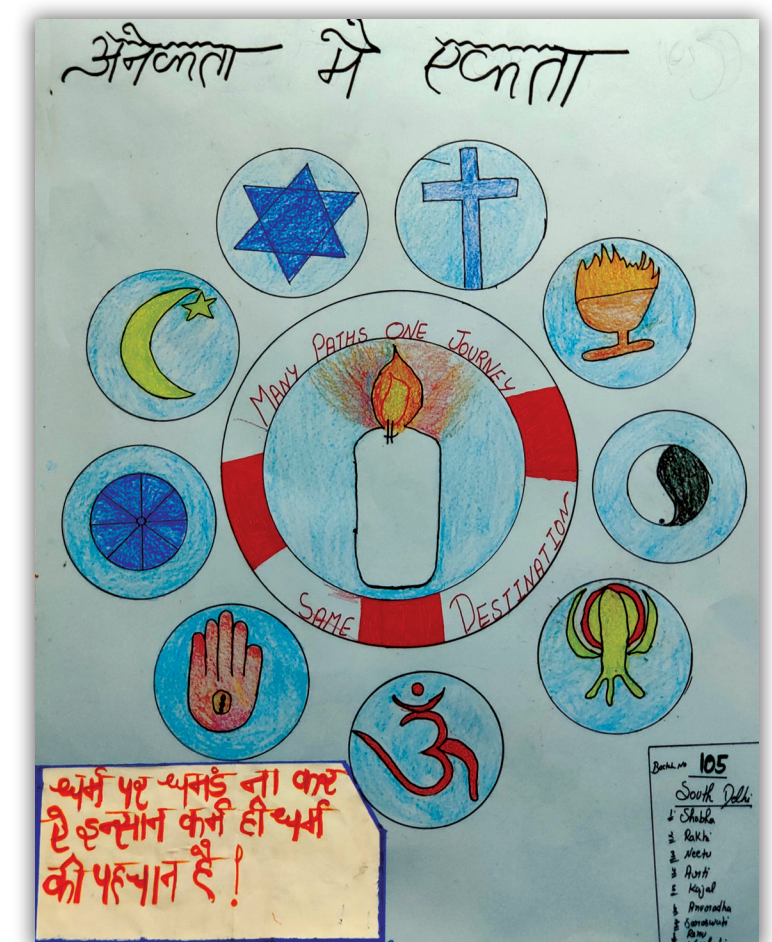 अनेकता मे एकता
MANY PATHS ONE JOURNEY
SAME DESTINATION
धर्म पर घमंड ना कर
ऐ इन्सान कर्म ही धर्म
की पहचान है!
Batch No 105
South Delhi
1 Shobha
2 Rakhi
3 Neetu
4 Aarti
5 Kajal
6 Anuradha
Saraswati